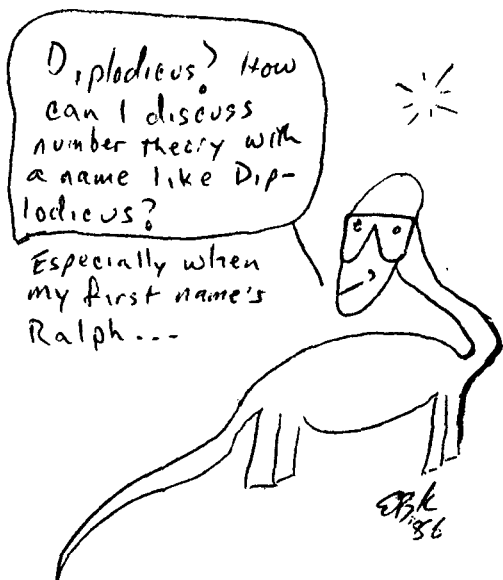 Diplodicus? How
can I discuss
number theory with
a name like Dip-
lodicus?
Especially when
my first name's
Ralph...
EBK
'86